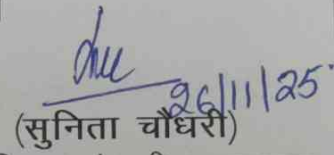 26/11/25
(सुनिता चौधरी)